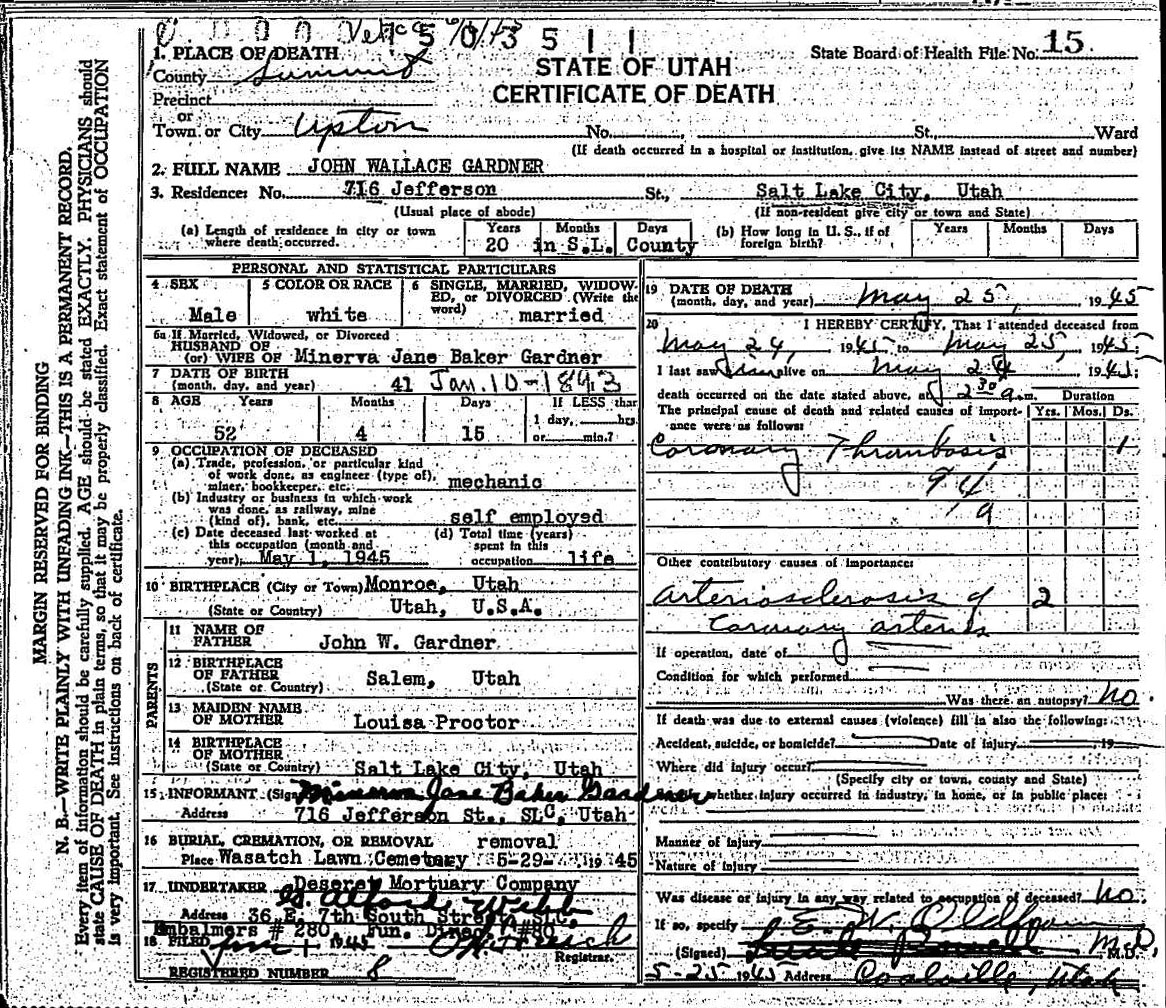 State Board of Health File No. 15
1. PLACE OF DEATH
County Summit
STATE OF UTAH
CERTIFICATE OF DEATH
Precinct
or
Town or City Upton No. St., Ward
(If death occurred in a hospital or institution, give its NAME instead of street and number)
2. FULL NAME JOHN WALLACE GARDNER
3. Residence: No. 716 Jefferson St., Salt Lake City, Utah
(Usual place of abode) (If non-resident give city or town and State)
(a) Length of residence in city or town where death occurred. Years Months Days
20 in S.L. County
(b) How long in U. S., if of foreign birth? Years Months Days
MARGIN RESERVED FOR BINDING
N. B.—WRITE PLAINLY WITH UNFADING INK—THIS IS A PERMANENT RECORD.
Every item of information should be carefully supplied. AGE should be stated EXACTLY. PHYSICIANS should
state CAUSE OF DEATH in plain terms, so that it may be properly classified. Exact statement of OCCUPATION
is very important. See instructions on back of certificate.
PERSONAL AND STATISTICAL PARTICULARS
4 SEX 5 COLOR OR RACE 6 SINGLE, MARRIED, WIDOW-
ED, or DIVORCED (Write the
word)
Male white married
6a If Married, Widowed, or Divorced
HUSBAND OF
(or) WIFE OF Minerva Jane Baker Gardner
7 DATE OF BIRTH
(month, day, and year) 41 Jan. 10-1893
8 AGE Years Months Days If LESS than
1 day, hrs.
52 4 15 or min.?
9 OCCUPATION OF DECEASED
(a) Trade, profession, or particular kind
of work done, as engineer (type of),
miner, bookkeeper, etc. mechanic
(b) Industry or business in which work
was done, as railway, mine
(kind of), bank, etc. self employed
(c) Date deceased last worked at
this occupation (month and
year) May 1, 1945
(d) Total time (years)
spent in this
occupation life
10 BIRTHPLACE (City or Town) Monroe, Utah
(State or Country) Utah, U.S.A.
PARENTS
11 NAME OF
FATHER John W. Gardner
12 BIRTHPLACE
OF FATHER
(State or Country) Salem, Utah
13 MAIDEN NAME
OF MOTHER Louisa Proctor
14 BIRTHPLACE
OF MOTHER
(State or Country) Salt Lake City, Utah
15 INFORMANT (Sign Minerva Jane Baker Gardner
Address 716 Jefferson St., SLC, Utah
16 BURIAL, CREMATION, OR REMOVAL removal
Place Wasatch Lawn Cemetery 5-29- 1945
17 UNDERTAKER Deseret Mortuary Company
Address 36 E. 7th South Street, SLC.
Embalmers # 280, Fun. Direc #80
18 FILED 1945
Registrar.
REGISTERED NUMBER 8
19 DATE OF DEATH
(month, day, and year) May 25, 1945
20 I HEREBY CERTIFY, That I attended deceased from
May 24, 1945 to May 25, 1945
I last saw alive on May 24 1945
death occurred on the date stated above, at 2 30 a.m. Duration
The principal cause of death and related causes of import-
ance were as follows: Yrs. Mos. Ds.
Coronary Thrombosis 1
94
a
Other contributory causes of importance:
Arteriosclerosis of 2
coronary arteries
If operation, date of
Condition for which performed
Was there an autopsy? No
If death was due to external causes (violence) fill in also the following:
Accident, suicide, or homicide? Date of injury 19
Where did injury occur?
(Specify city or town, county and State)
whether injury occurred in industry, in home, or in public place:
Manner of injury
Nature of injury
Was disease or injury in any way related to occupation of deceased? No.
If so, specify E. W. Oldham
(Signed) M.D.
5-25 1945 Address Coalville, Utah